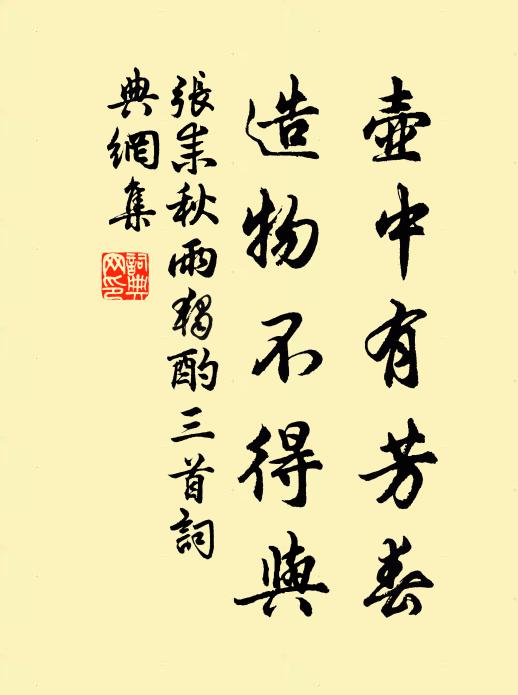 壺中有芳春
造物不得與
張耒秋雨獨酌三首詞
典網集
詞典
网印